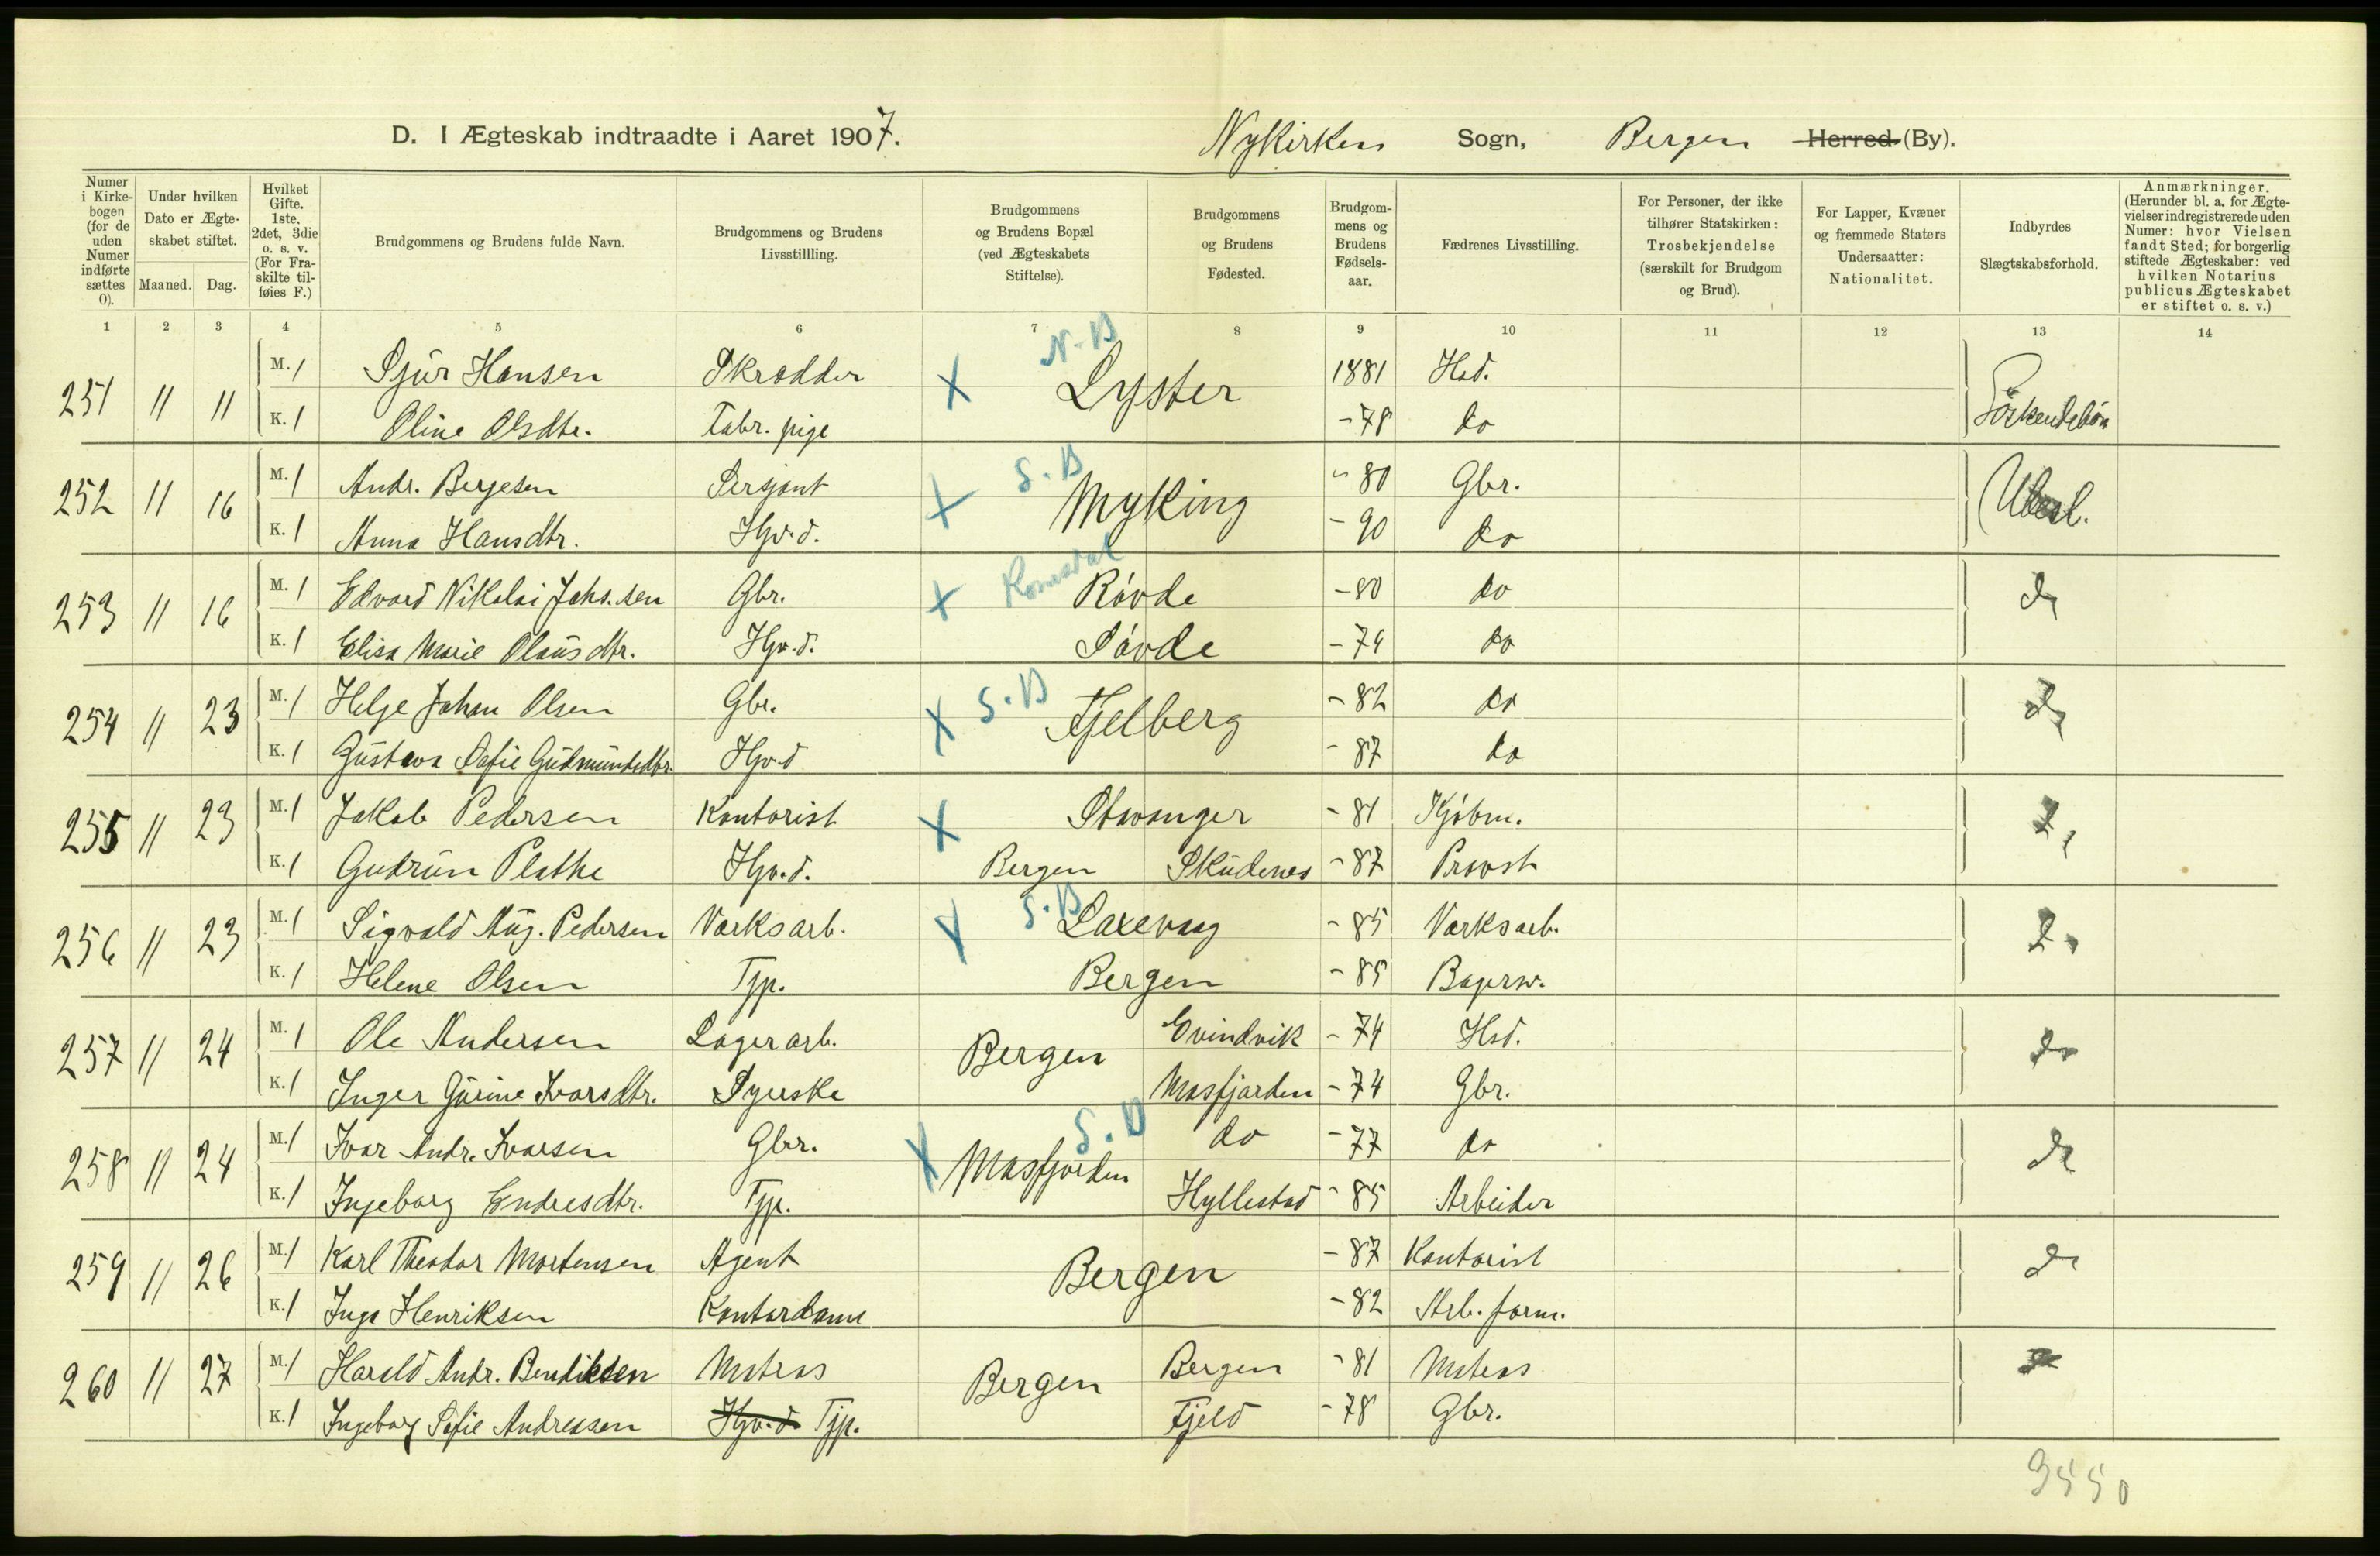 D. I Ægteskab indtraadte i Aaret 1907. Nykirken Sogn, Bergen Herred (By).
Numer i Kirke-bogen (for de uden Numer indførte sættes 0).
Under hvilken Dato er Ægte-skabet stiftet.
Maaned. Dag.
Hvilket Gifte. 1ste, 2det, 3die o. s. v. (For Fra-skilte til-føies F.)
Brudgommens og Brudens fulde Navn.
Brudgommens og Brudens Livsstillling.
Brudgommens og Brudens Bopæl (ved Ægteskabets Stiftelse).
Brudgommens og Brudens Fødested.
Brudgom-mens og Brudens Fødsels-aar.
Fædrenes Livsstilling.
For Personer, der ikke tilhører Statskirken: Trosbekjendelse (særskilt for Brudgom og Brud).
For Lapper, Kvæner og fremmede Staters Undersaatter: Nationalitet.
Indbyrdes Slægtskabsforhold.
Anmærkninger. (Herunder bl. a. for Ægte-vielser indregistrerede uden Numer: hvor Vielsen fandt Sted; for borgerlig stiftede Ægteskaber: ved hvilken Notarius publicus Ægteskabet er stiftet o. s. v.)
1 2 3 4 5 6 7 8 9 10 11 12 13 14
N.B
251 11 11 M. 1 Sjur Hansen Skrædder X Lyster 1881 Hsd. Söskendebörn
K. 1 Oline Olsdtr. Fabr. pige -78 do
S.B
252 11 16 M. 1 Andr. Bergesen Sersjant X Myking -80 Gbr. Ubesl.
K. 1 Anna Hansdtr. Hjv.d. -90 do
Romsdal
253 11 16 M. 1 Edvard Nikolai Johs.sen Gbr. X Róvde -80 do do
K. 1 Elisa Marie Olausdtr. Hjv.d. Sóvde -79 do
S.B
254 11 23 M. 1 Helge Johan Olsen Gbr. X Fjelberg -82 do do
K. 1 Gustava Sofie Gudmundsdtr. Hjv.d -87 do
255 11 23 M. 1 Jakob Pedersen Kontorist X Stavanger -81 Kjóbm. do
K. 1 Gudrun Plathe Hjv.d. Bergen Skudenes -87 Provst
S.B
256 11 23 M. 1 Sigvald Aug. Pedersen Værksarb. X Laxevaag -85 Værksarb. do
K. 1 Helene Olsen Tjp. Bergen -85 Bagersv.
257 11 24 M. 1 Ole Andersen Lagerarb. Bergen Evindvik -74 Hsd. do
K. 1 Inger Gurine Ivarsdtr. Syerske Masfjorden -74 Gbr.
S.B
258 11 24 M. 1 Ivar Andr. Ivarsen Gbr. X Masfjorden do -77 do do
K. 1 Ingeborg Endresdtr. Tjp. Hyllestad -85 Arbeider
259 11 26 M. 1 Karl Theodor Mortensen Agent Bergen -87 Kontorist do
K. 1 Inga Henriksen Kontordame -82 Arb.form.
260 11 27 M. 1 Harald Andr. Bendiksen Matros Bergen Bergen -81 Matros do
K. 1 Ingeborg Sofie Andreasen Hjv.d Tjp. Fjeld -78 Gbr.
3550